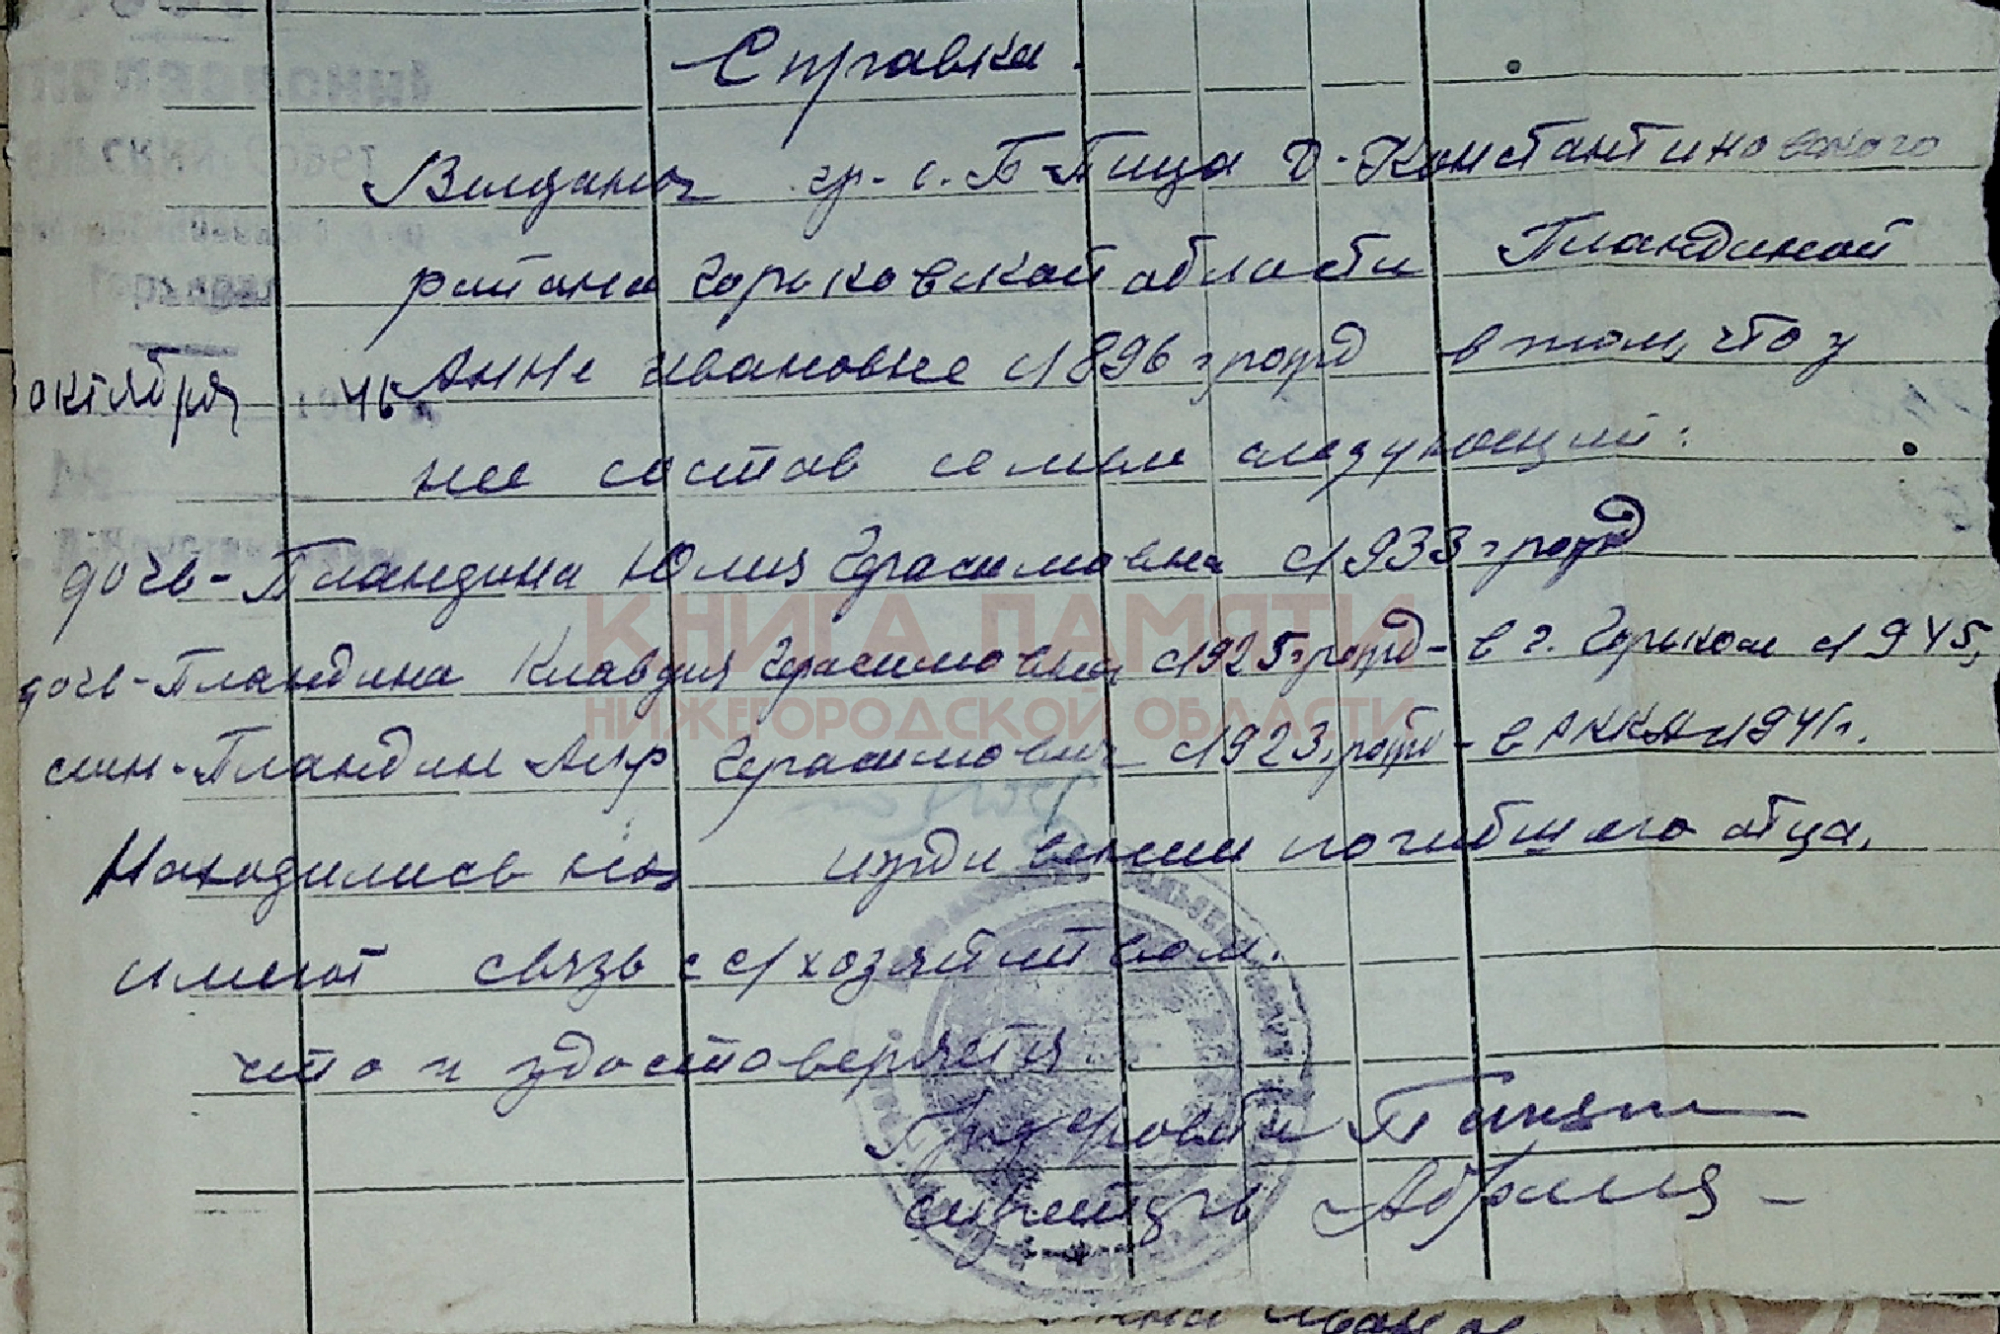 Справка.
Выдана гр. с. Б-Пица Д-Константиновского
района Горьковской области Пландиной
октября 46 Анне Ивановне с 1896 г рожд в том, что у
нее состав семьи следующий:
дочь-Пландина Юлия Герасимовна с 1933 г рожд
КНИГА ПАМЯТИ
дочь-Пландина Клавдия Герасимовна с 1925 г рожд-в г. Горьком с 1945,
НИЖЕГОРОДСКОЙ ОБЛАСТИ
сын-Пландин Ал-р Герасимович с 1923 г рожд-в РККА с 1941 г.
Находились на иждивении погибшего отца,
имеют связь с с/хозяйством.
что и удостоверяется
Пред с/совета
секретарь